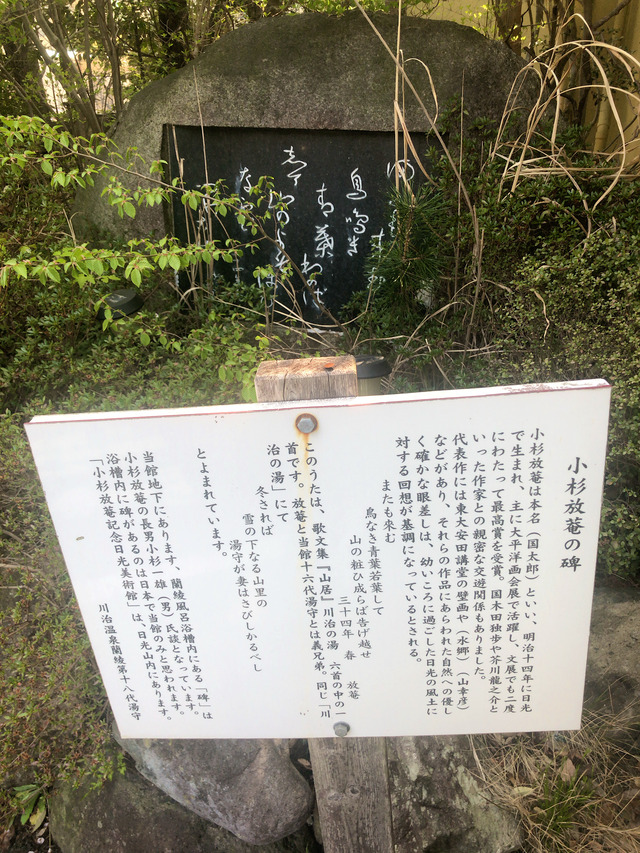 小杉放菴の碑
小杉放菴は本名（国太郎）といい、明治十四年に日光
で生まれ、主に太平洋画会展で活躍し、文展でも二度
にわたって最高賞を受賞。国木田独歩や芥川龍之介と
いった作家との親密な交遊関係もありました。
代表作には東大安田講堂の壁画や（水郷）（山幸彦）
などがあり、それらの作品にあらわれた自然への優し
く確かな眼差しは、幼いころに過ごした日光の風土に
対する回想が基調になっているとされる。
またも來む
鳥なき青葉若葉して
山の粧ひ成らば告げ越せ
三十四年　春　放菴
このうたは、歌文集『山居』川治の湯　六首の中の一
首です。放菴と当館十六代湯守とは義兄弟。同じ「川
治の湯」にて
冬されば
雪の下なる山里の
湯守が妻はさびしかるべし
とよまれています。
当館地下にあります、蘭綾風呂浴槽内にある「碑」は
小杉放菴の長男小杉一雄（男）氏談となっています。
浴槽内に碑があるのは日本で当館のみと思われます。
「小杉放菴記念日光美術館」は、日光山内にあります。
川治温泉蘭綾第十八代湯守
鳥鳴き
青葉わかば